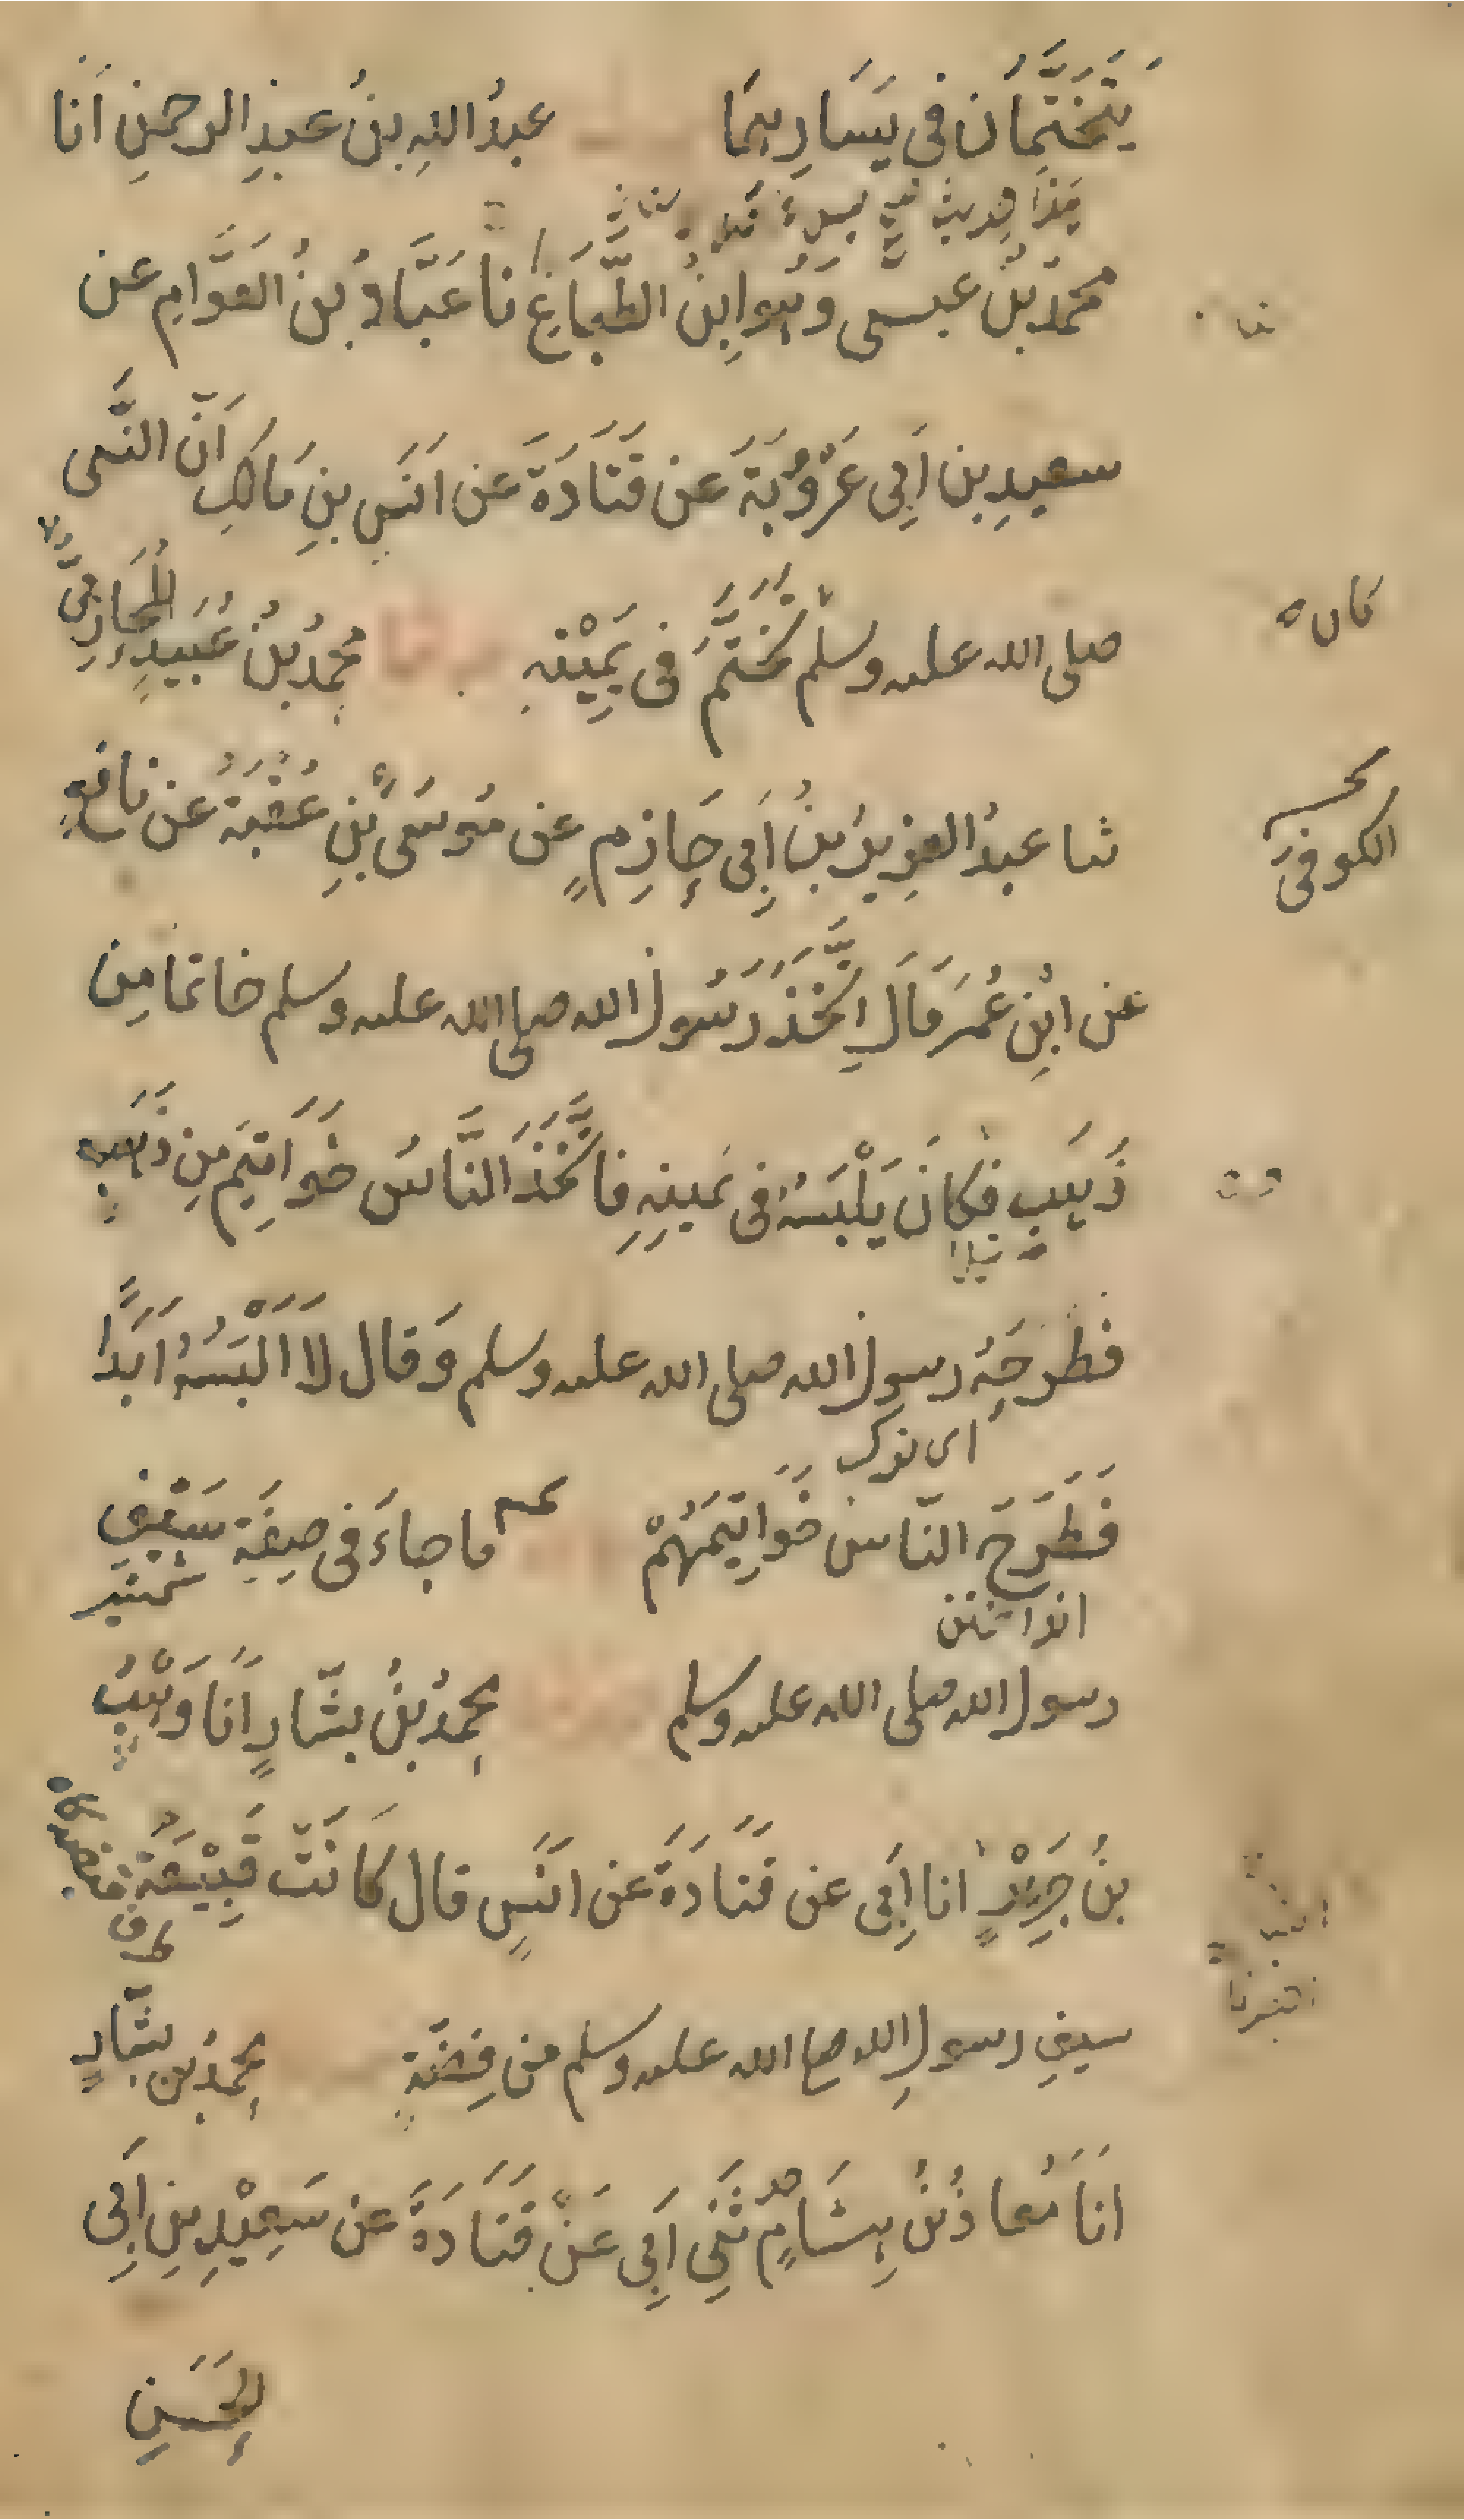 يَتَخَتَّمَانِ فِي يَسَارِهِمَا عبدُ اللهِ بنُ عبدِ الرحمنِ اَنَا
هَذَا حديث
محمدُ بنُ عيسى وَهُوَ ابنُ الطَّبَّاعِ نا عَبَّادُ بنُ العَوَّامِ عن
سعيدِ بن اَبِي عَرُوْبَةَ عن قَتَادَةَ عن اَنَسِ بنِ مَالِكٍ اَنَّ النَّبي
صلى الله عليه وسلم تَخَتَّمَ فى يَمِيْنِهِ محمدُ بنُ عُبَيدٍ المُحَارِبِيُّ
كان
ثنا عبدُ العزيزِ بنُ اَبِي حَازِمٍ عن مُوسَى بنِ عُقْبَةَ عن نافعٍ
الكوفى
عن ابْنِ عُمَرَ قَالَ اِتَّخَذَ رَسُولُ الله صلى الله عليه وسلم خاتما مِن
ذَهَبٍ فكانَ يَلْبَسُهُ فى يَمينِهِ فاتَّخَذَ النَّاسُ خَوَاتِيْمَ مِن ذَهَبٍ
فطرحَهُ رسولُ الله صلى الله عليه وسلم وَقال لَا اَلْبَسُهُ اَبَدًا
اى ترك
فَطَرَحَ النّاسُ خَوَاتِيْمَهُمْ ما جاءَ فى صِفَةِ سَيْفِ
رسول الله صلى الله عليه وسلم محمدُ بنُ بشّارٍ اَنَا وَهْبُ
بنُ جَرِيْرٍ انا اَبِي عن قَتَادَةَ عن اَنَسٍ قال كَانَتْ قَبِيْعَةُ
اخبرنا
سيفِ رسولِ الله صلى الله عليه وسلم من فِضَّةٍ محمدُ بن بشّارٍ
اَنَا مُعاذُ بْنُ هِشَامٍ ثَنِي اَبِي عَنْ قَتَادَةَ عن سَعِيْدِ بنِ اَبِي
الحَسَنِ